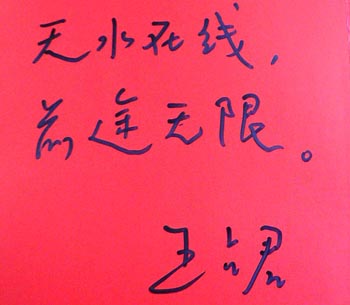 天水在线，
前途无限。